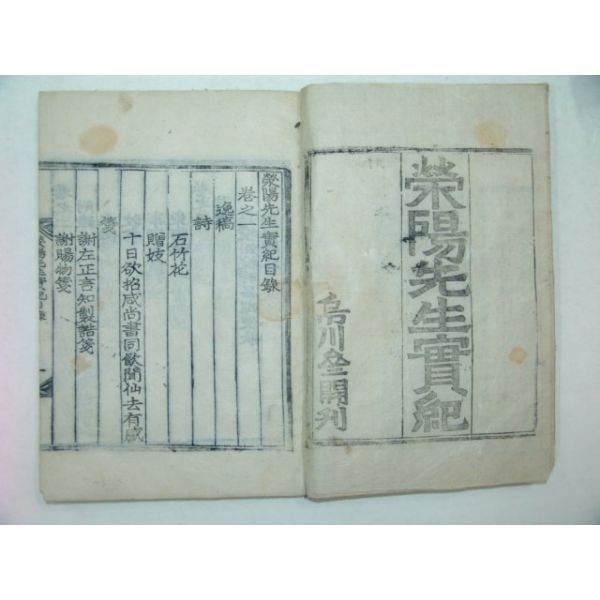 滎陽先生實紀
烏川開刊
滎陽先生實紀目錄
卷之一
逸稿
詩
石竹花
贈妓
十日欲招咸尚書同飮聞仙去有感
箋
謝左正言知製誥箋
謝賜物箋
滎陽先生實紀目錄